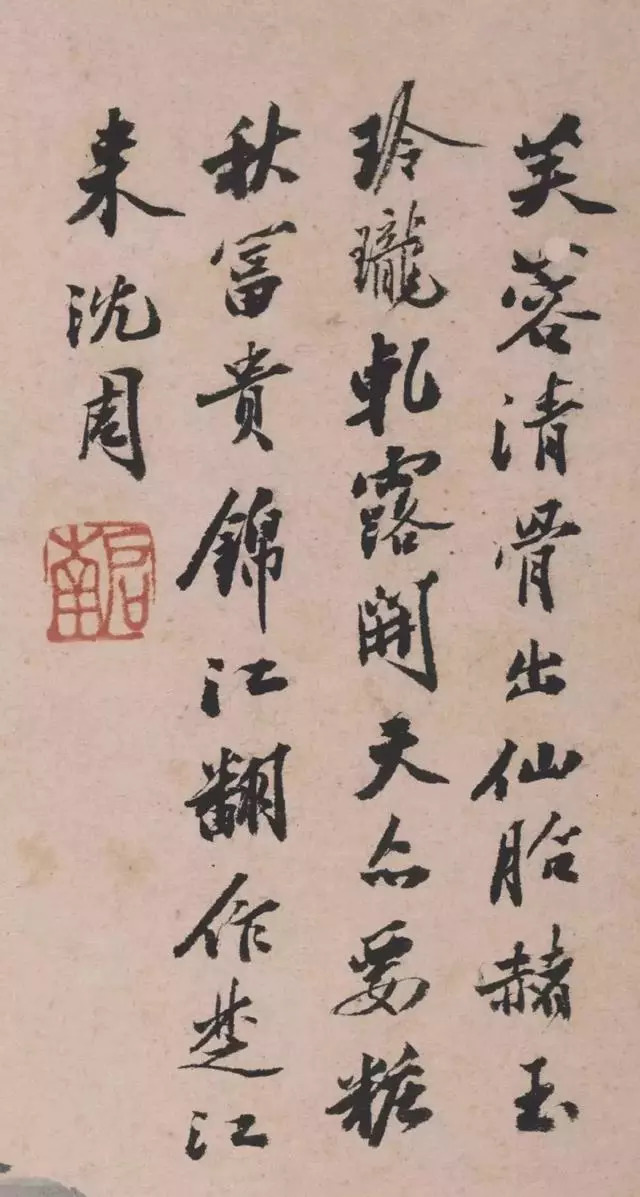 芙蓉清骨出仙胎赭玉
玲瓏軋露開天亦要粧
秋冨貴錦江翻作楚江
来沈周
啓南